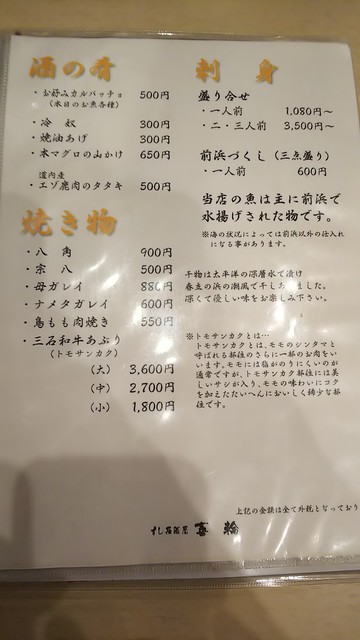 酒の肴
・お好みカルパッチョ 500円
（本日のお魚各種）
・冷奴 300円
・焼油あげ 300円
・本マグロの山かけ 650円
道内産
・エゾ鹿肉のタタキ 500円
焼き物
・八角 900円
・宗八 500円
・母ガレイ 880円
・ナメタガレイ 600円
・鳥もも肉焼き 550円
・三石和牛あぶり
（トモサンカク）
（大） 3,600円
（中） 2,700円
（小） 1,800円
刺身
盛り合せ
・一人前 1,080円～
・二・三人前 3,500円～
前浜づくし（三点盛り）
・一人前 600円
当店の魚は主に前浜で
水揚げされた物です。
※海の状況によっては前浜以外の仕入れ
になる事があります。
干物は太平洋の深層水で漬け
春立の浜の潮風で干しあ ました。
深くて優しい味をお楽しみ下さい。
※トモサンカクとは…
トモサンカクとは、モモのシンタマと
呼ばれる部位のさらに一部のお肉をい
います。モモには脂がのりにくいのが
通常ですが、トモサンカク部位には美
しいサシが入り、モモの味わいにコク
を加えたたいへんにおいしく稀少な部
位です。
上記の金額は全て外税となっており
すし居酒屋 喜輪